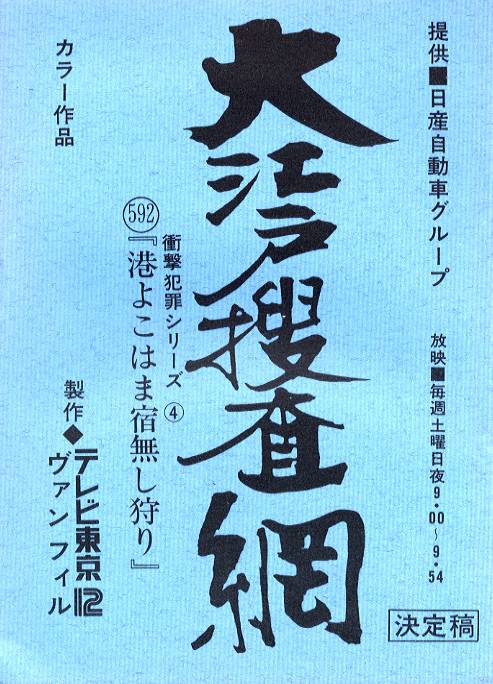 提供■日産自動車グループ
放映■毎週土曜日夜9・00〜9・54
決定稿
大江戸捜査網
衝撃犯罪シリーズ④
592『港よこはま宿無し狩り』
カラー作品
製作◆テレビ東京12
ヴァンフィル